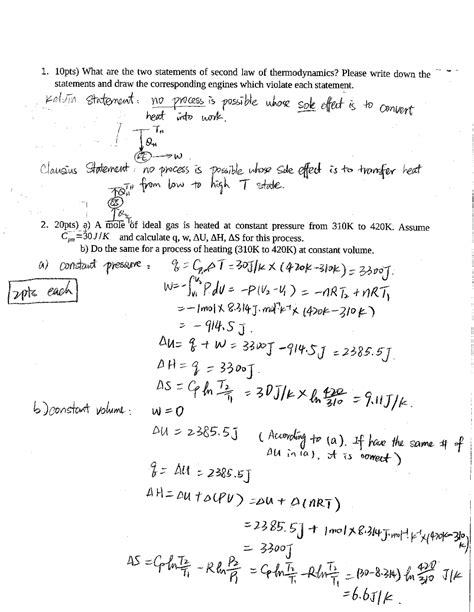 1. 10pts) What are the two statements of second law of thermodynamics? Please write down the
statements and draw the corresponding engines which violate each statement.
Kelvin Statement: no process is possible whose sole effect is to convert
heat into work.
T_H
Q_H
→ W
Clausius Statement: no process is possible whose sole effect is to transfer heat
from low to high T state.
2. 20pts) a) A mole of ideal gas is heated at constant pressure from 310K to 420K. Assume
C_pm=30J/K and calculate q, w, ΔU, ΔH, ΔS for this process.
b) Do the same for a process of heating (310K to 420K) at constant volume.
a) constant pressure: q = C_p ΔT = 30J/K × (420K-310K) = 3300J.
2pts each
W = -∫_{V_1}^{V_2} PdV = -P(V_2-V_1) = -nRT_2 + nRT_1
= -1mol × 8.314J·mol⁻¹K⁻¹ × (420K-310K)
= -914.5J
ΔU = q + W = 3300J - 914.5J = 2385.5J
ΔH = q = 3300J.
ΔS = C_p ln T_2/T_1 = 30J/K × ln 420/310 = 9.11J/K.
b) constant volume: W = 0
ΔU = 2385.5J (According to (a). If have the same # of
ΔU in (a), it is correct)
q = ΔU = 2385.5J
ΔH = ΔU + Δ(PV) = ΔU + Δ(nRT)
= 2385.5J + 1mol × 8.314J·mol⁻¹·K⁻¹ × (420K-310K)
= 3300J
ΔS = C_p ln T_2/T_1 - R ln P_2/P_1 = C_p ln T_2/T_1 - R ln T_2/T_1 = (30-8.314) ln 420/310 J/K
= 6.6J/K.